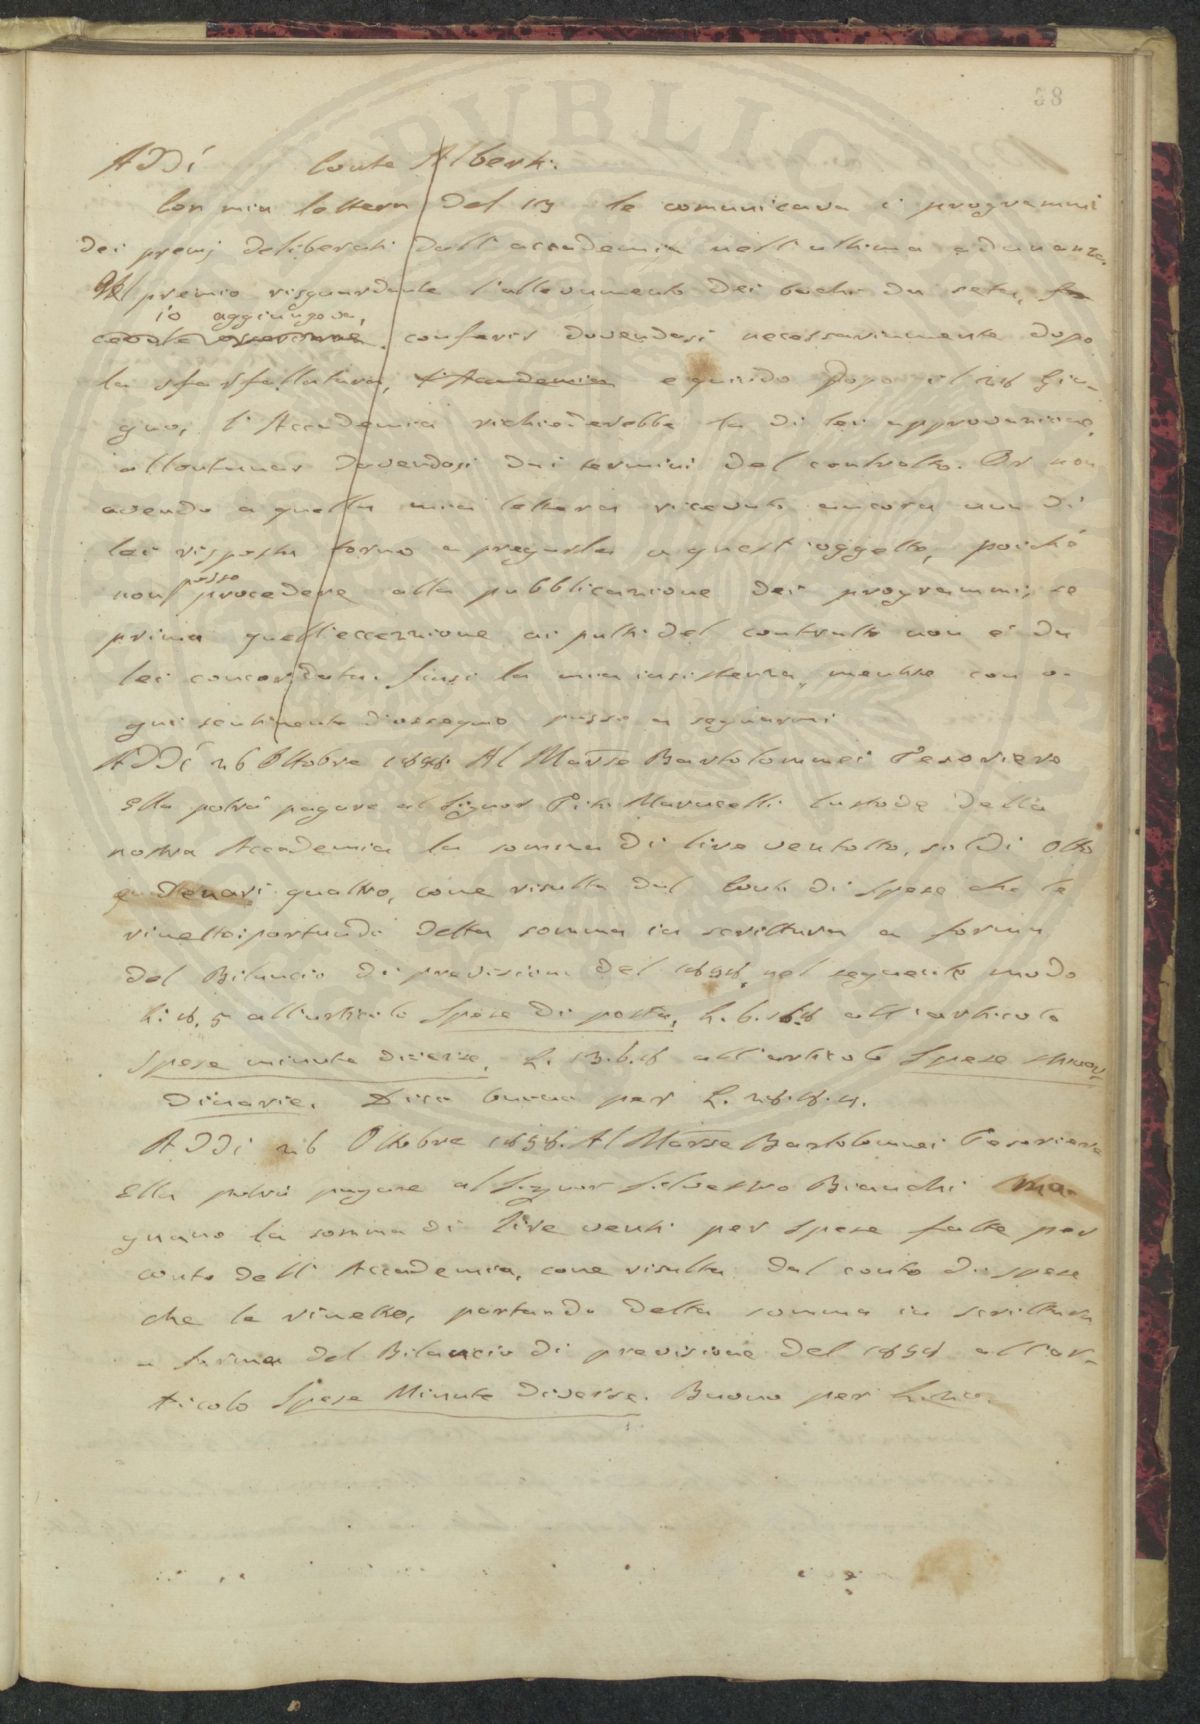 58
Addì Conte Alberti.
Con mia lettera del 19 le comunicava i programmi
dei premj deliberati dall'accademia nell'ultima adunanza.
Al premio risguardante l'allevamento dei bachi da seta,
io aggiungeva,
conferir dovendosi necessariamente dopo
la sfarfallatura, l'Accademia e quindi dopo il 28 Giu-
gno, l'Accademia richiederebbe la di lei approvazione,
allontanar dovendosi dai termini del contratto. Or non
avendo a quella mia lettera ricevuto ancora una di
lei risposta torno a pregarla a quest'oggetto, poichè
posso
non procedere alla pubblicazione dei programmi, se
prima quell'eccezzione ai patti del contratto non è da
lei concordata. Scusi la mia insistenza, mentre con o-
gni sentimento d'ossequio passo a segnarmi
Addì 26 Ottobre 1858. Al Marse Bartolommei Tesoriere
Ella potrà pagare al Signor Marucelli Custode della
nostra Accademia la somma di lire ventotto, soldi otto
e denari quattro, come risulta dal Conto di Spese che le
rimetto: portando detta somma in scrittura a forma
del Bilancio di previsione del 1858, nel seguente modo
L. 8. 5 all'articolo Spese di posta, L. 6. 16.8 all'articolo
Spese minute diverse, L. 13. 6. 8 all'articolo Spese straor-
dinarie. Dico buono per L. 28. 8. 4.
Addì 26 Ottobre 1858. Al Marse Bartolommei Tesoriere
Ella potrà pagare al Signor Silvestro Bianchi Ma-
gnano la somma di lire venti per spese fatte per
conto dell'Accademia, come risulta dal conto di spese
che le rimetto, portando detta somma in scrittura
a forma del Bilancio di previsione del 1858 all'ar-
ticolo Spese Minute diverse. Buono per L. 20.